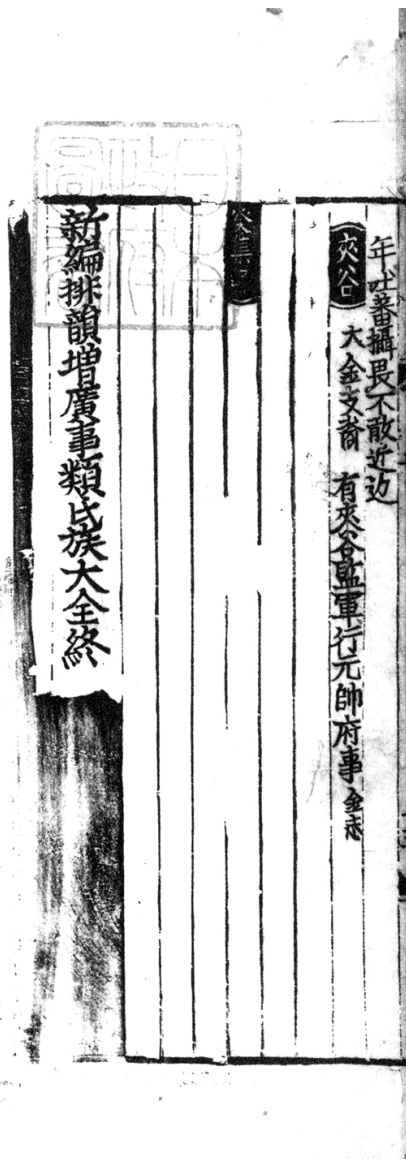 年吐蕃攝畏不敢近边
夾谷
大金支裔 有夾谷監軍行元帥府事 金末
新編排韻增廣事類氏族大全終